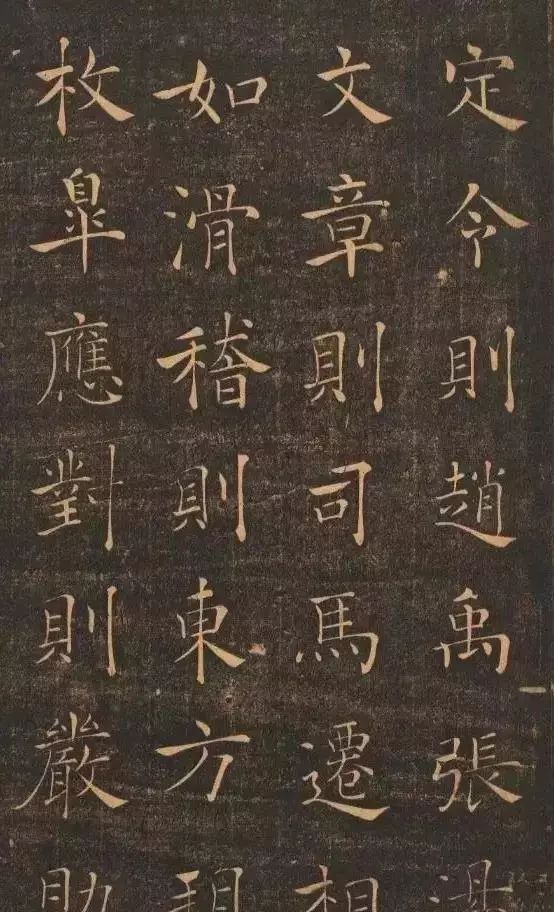 定令則趙禹張湯
文章則司馬遷相
如滑稽則東方朔
枚皋應對則嚴助